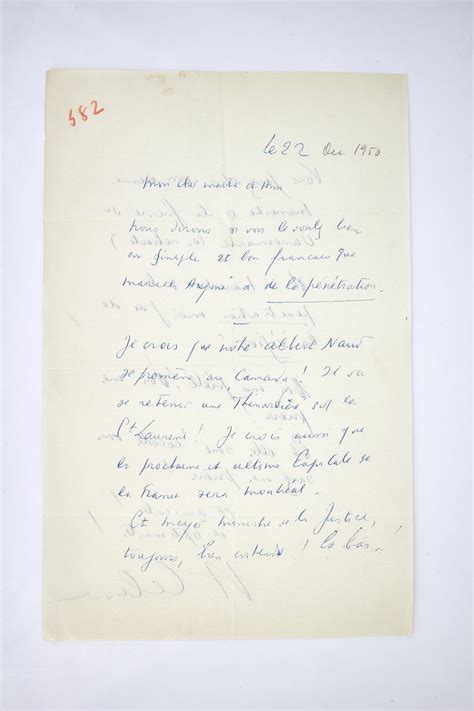 582
le 22 Dec 1950
Mon cher maître et Ami
nous dirons si vous le voulez bien
en simple et bon français que
Marcel a de la pénétration.
Je crois que notre Albert Naud
se promène au Canada ! Il va
se retenir une Thénardière sur le
St Laurent ! Je crois aussi que
la prochaine et ultime Capitale de
la France sera Montréal.
St Mayo ministre de la Justice,
toujours, bien entendu ! là bas !